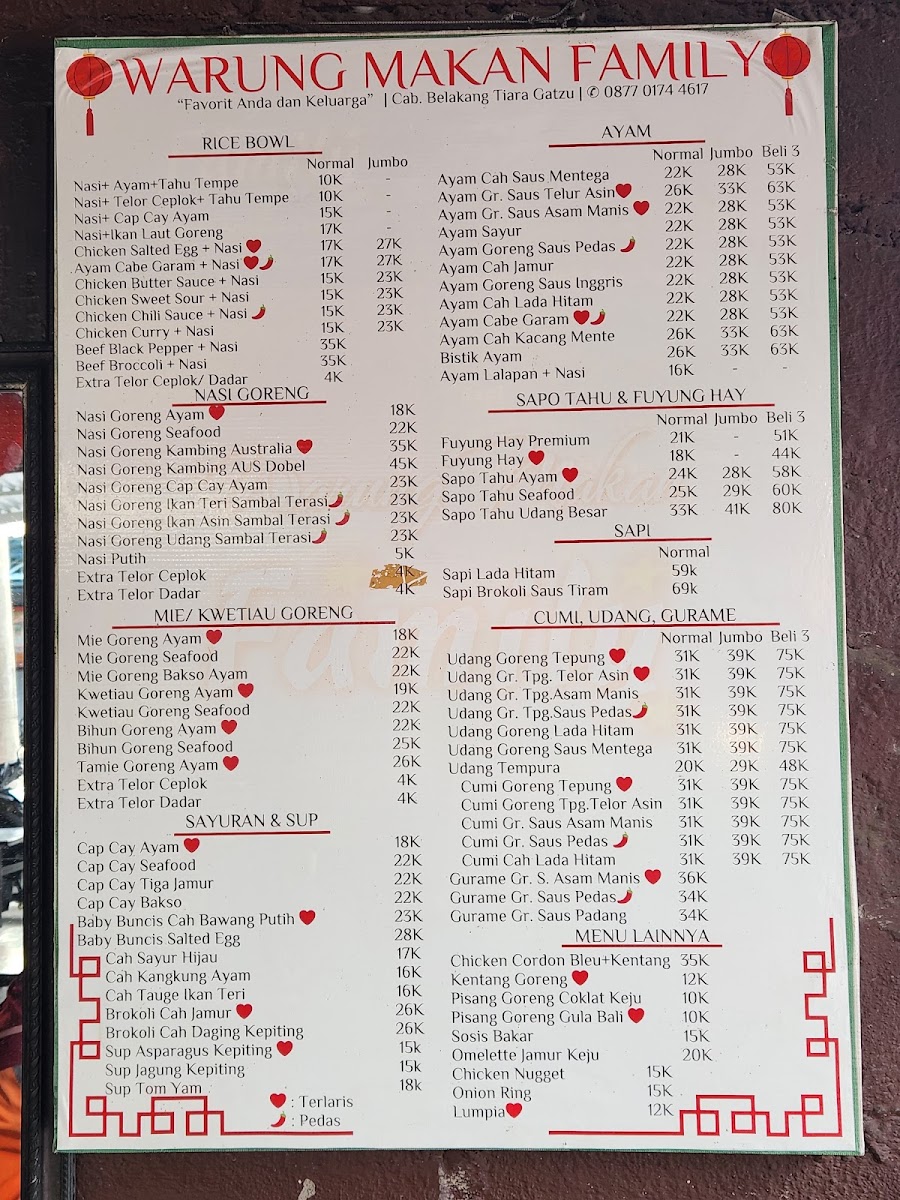 WARUNG MAKAN FAMILY
"Favorit Anda dan Keluarga" | Cab. Belakang Tiara Gatzu | ✆ 0877 0174 4617
RICE BOWL
Normal Jumbo
Nasi+ Ayam+Tahu Tempe 10K -
Nasi+ Telor Ceplok+ Tahu Tempe 10K -
Nasi+ Cap Cay Ayam 15K -
Nasi+Ikan Laut Goreng 17K -
Chicken Salted Egg + Nasi 17K 27K
Ayam Cabe Garam + Nasi 17K 27K
Chicken Butter Sauce + Nasi 15K 23K
Chicken Sweet Sour + Nasi 15K 23K
Chicken Chili Sauce + Nasi 15K 23K
Chicken Curry + Nasi 15K 23K
Beef Black Pepper + Nasi 35K
Beef Broccoli + Nasi 35K
Extra Telor Ceplok/ Dadar 4K
NASI GORENG
Nasi Goreng Ayam 18K
Nasi Goreng Seafood 22K
Nasi Goreng Kambing Australia 35K
Nasi Goreng Kambing AUS Dobel 45K
Nasi Goreng Cap Cay Ayam 23K
Nasi Goreng Ikan Teri Sambal Terasi 23K
Nasi Goreng Ikan Asin Sambal Terasi 23K
Nasi Goreng Udang Sambal Terasi 23K
Nasi Putih 5K
Extra Telor Ceplok 4K
Extra Telor Dadar 4K
MIE/ KWETIAU GORENG
Mie Goreng Ayam 18K
Mie Goreng Seafood 22K
Mie Goreng Bakso Ayam 22K
Kwetiau Goreng Ayam 19K
Kwetiau Goreng Seafood 22K
Bihun Goreng Ayam 22K
Bihun Goreng Seafood 25K
Tamie Goreng Ayam 26K
Extra Telor Ceplok 4K
Extra Telor Dadar 4K
SAYURAN & SUP
Cap Cay Ayam 18K
Cap Cay Seafood 22K
Cap Cay Tiga Jamur 22K
Cap Cay Bakso 22K
Baby Buncis Cah Bawang Putih 23K
Baby Buncis Salted Egg 28K
Cah Sayur Hijau 17K
Cah Kangkung Ayam 16K
Cah Tauge Ikan Teri 16K
Brokoli Cah Jamur 26K
Brokoli Cah Daging Kepiting 26K
Sup Asparagus Kepiting 15k
Sup Jagung Kepiting 15k
Sup Tom Yam 18k
: Terlaris
: Pedas
AYAM
Normal Jumbo Beli 3
Ayam Cah Saus Mentega 22K 28K 53K
Ayam Gr. Saus Telur Asin 26K 33K 63K
Ayam Gr. Saus Asam Manis 22K 28K 53K
Ayam Sayur 22K 28K 53K
Ayam Goreng Saus Pedas 22K 28K 53K
Ayam Cah Jamur 22K 28K 53K
Ayam Goreng Saus Inggris 22K 28K 53K
Ayam Cah Lada Hitam 22K 28K 53K
Ayam Cabe Garam 22K 28K 53K
Ayam Cah Kacang Mente 26K 33K 63K
Bistik Ayam 26K 33K 63K
Ayam Lalapan + Nasi 16K - -
SAPO TAHU & FUYUNG HAY
Normal Jumbo Beli 3
Fuyung Hay Premium 21K - 51K
Fuyung Hay 18K - 44K
Sapo Tahu Ayam 24K 28K 58K
Sapo Tahu Seafood 25K 29K 60K
Sapo Tahu Udang Besar 33K 41K 80K
SAPI
Normal
Sapi Lada Hitam 59k
Sapi Brokoli Saus Tiram 69k
CUMI, UDANG, GURAME
Normal Jumbo Beli 3
Udang Goreng Tepung 31K 39K 75K
Udang Gr. Tpg. Telor Asin 31K 39K 75K
Udang Gr. Tpg.Asam Manis 31K 39K 75K
Udang Gr. Tpg.Saus Pedas 31K 39K 75K
Udang Goreng Lada Hitam 31K 39K 75K
Udang Goreng Saus Mentega 31K 39K 75K
Udang Tempura 20K 29K 48K
Cumi Goreng Tepung 31K 39K 75K
Cumi Goreng Tpg.Telor Asin 31K 39K 75K
Cumi Gr. Saus Asam Manis 31K 39K 75K
Cumi Gr. Saus Pedas 31K 39K 75K
Cumi Cah Lada Hitam 31K 39K 75K
Gurame Gr. S. Asam Manis 36K
Gurame Gr. Saus Pedas 34K
Gurame Gr. Saus Padang 34K
MENU LAINNYA
Chicken Cordon Bleu+Kentang 35K
Kentang Goreng 12K
Pisang Goreng Coklat Keju 10K
Pisang Goreng Gula Bali 10K
Sosis Bakar 15K
Omelette Jamur Keju 20K
Chicken Nugget 15K
Onion Ring 15K
Lumpia 12K